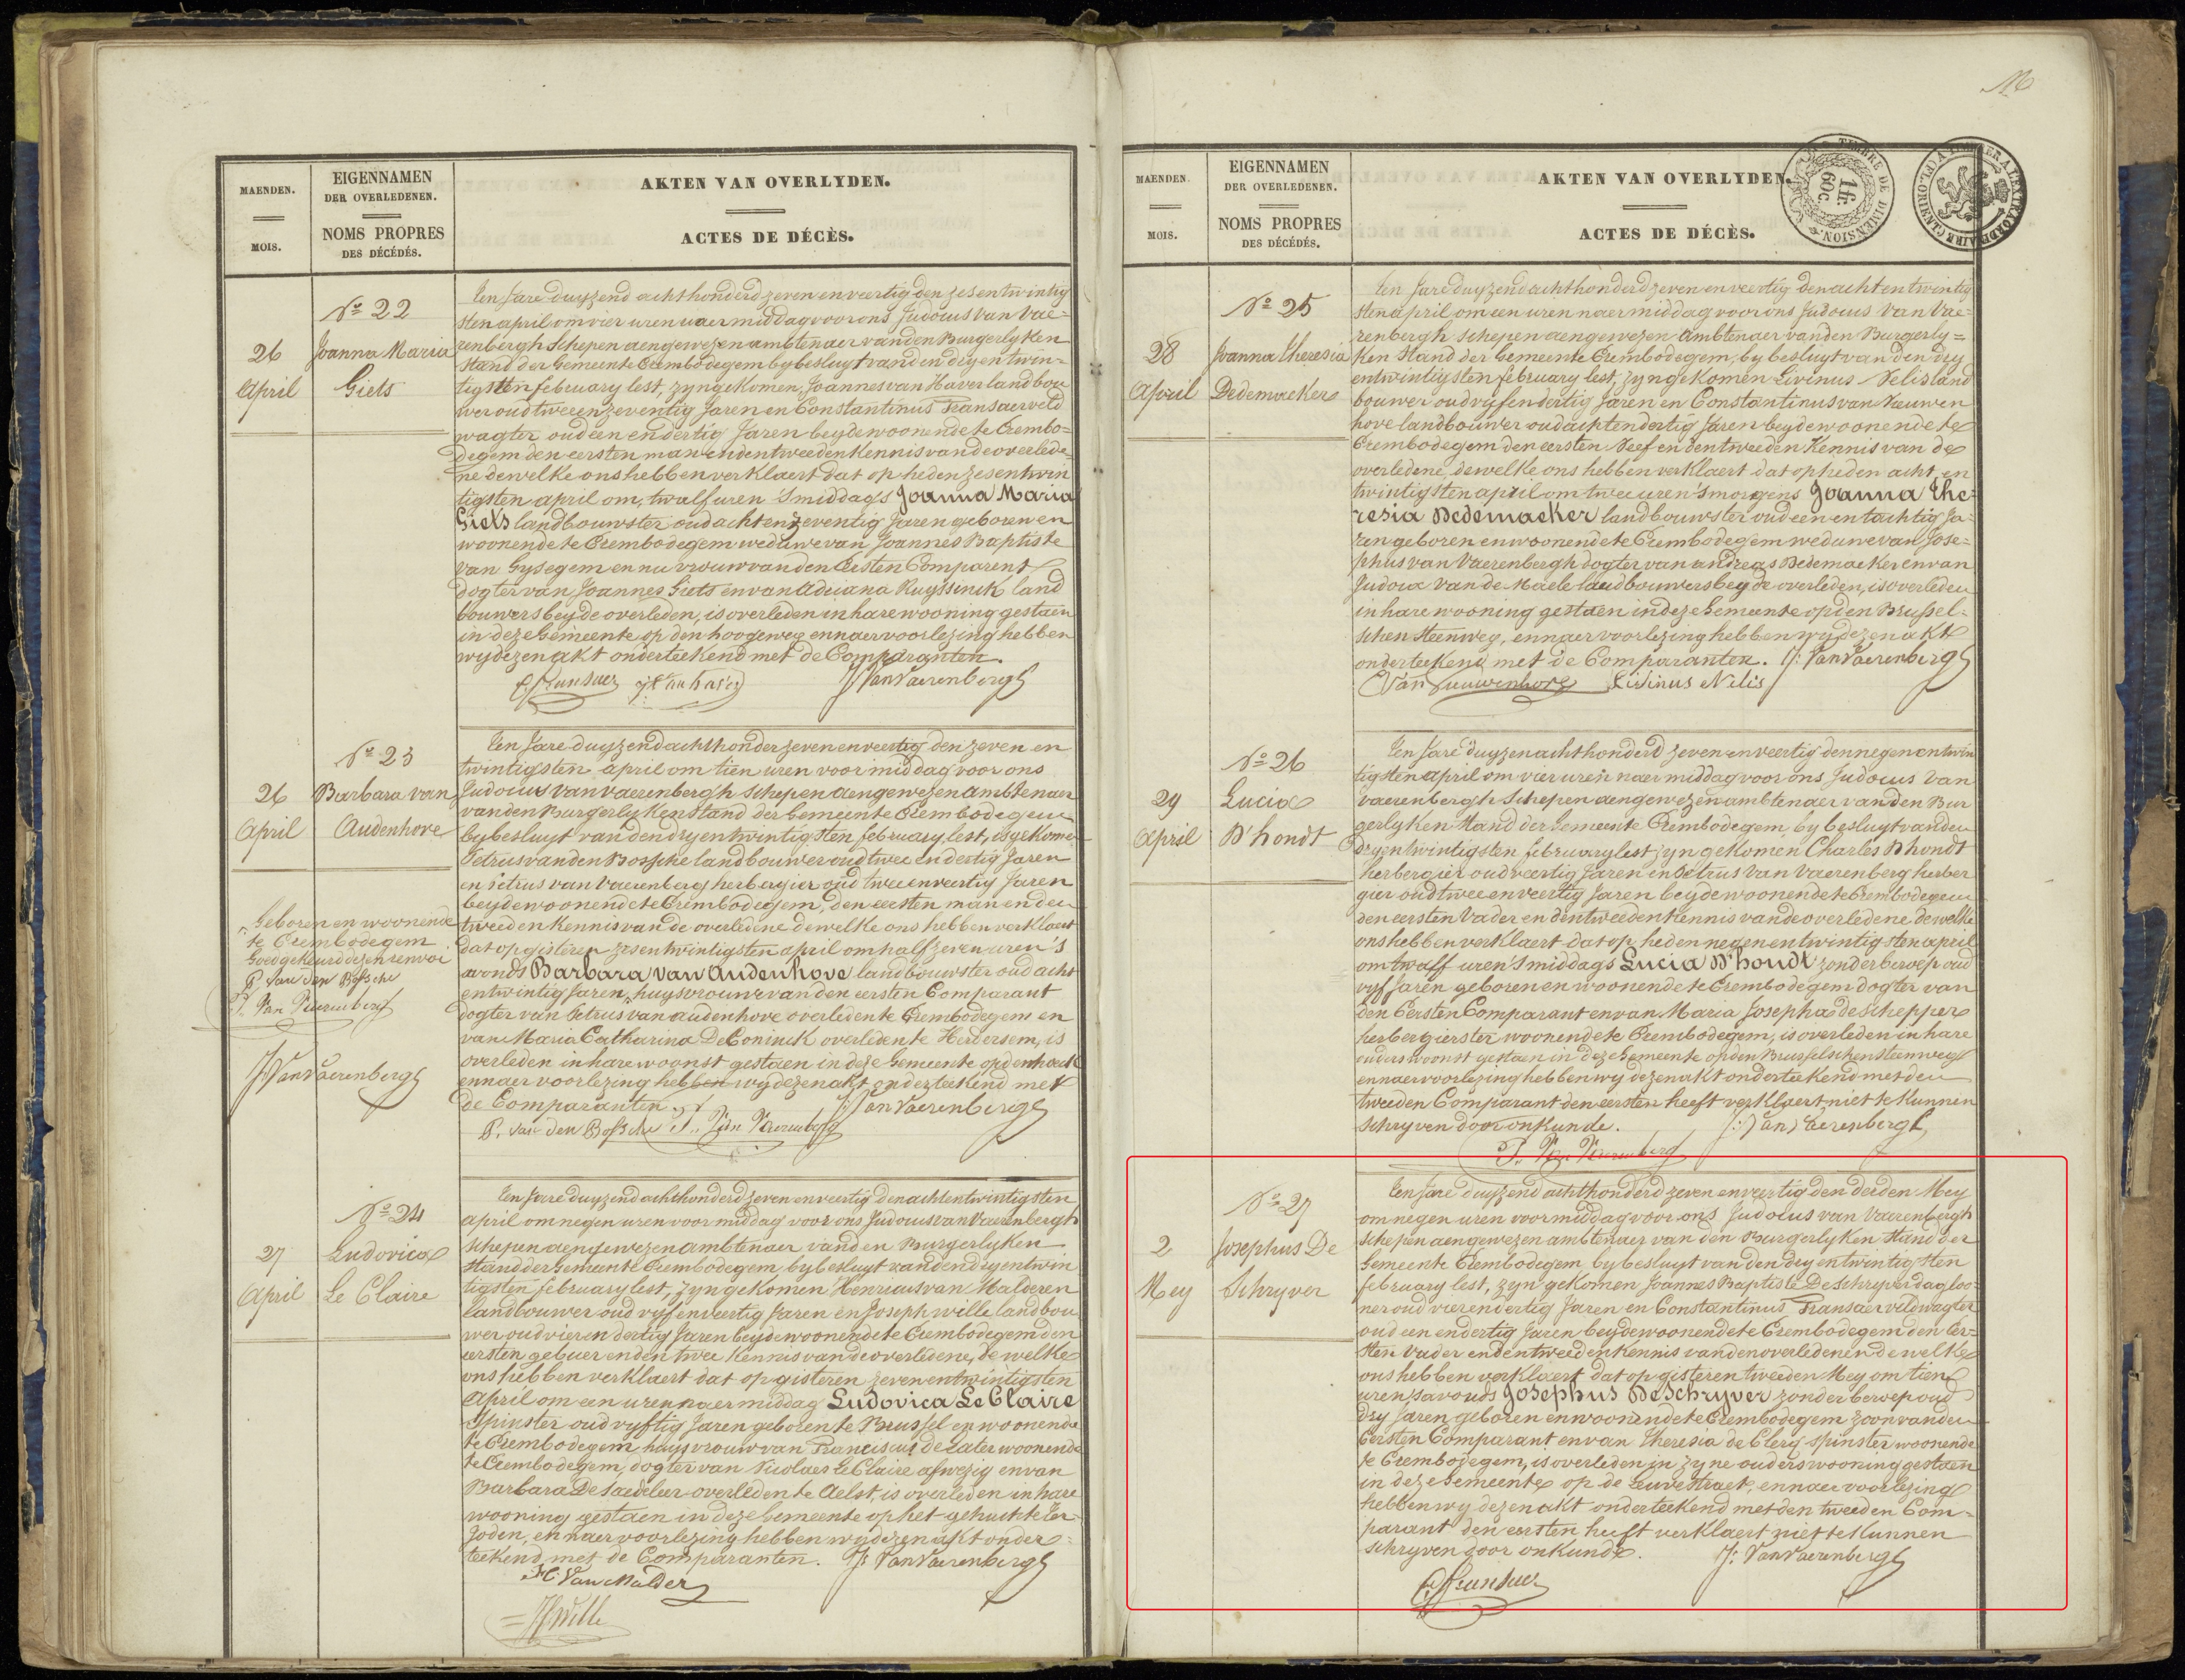 MAENDEN.
MOIS.
EIGENNAMEN
DER OVERLEDENEN.
NOMS PROPRES
DES DÉCÉDÉS.
AKTEN VAN OVERLYDEN.
ACTES DE DÉCÈS.
No 22
26
April
Joanna Maria
Giets
Ten Jare duyzend achthonderd zeven en veertig den zes en twintig
sten april om vier uren naer middag voor ons Judocus Van Vae-
renbergh Schepen aengewezen ambtenaer van den Burgerlyken
Stand der Gemeente Erembodegem by besluyt van den dry en twin-
tigsten february lest, zyn gekomen, Joannes van Haver landbou
wer oud twee en zeventig Jaren en Constantinus Transaer veld
wagter oud een en dertig Jaren beyde woonende te Erembo-
degem den eersten man en den tweeden Kennis van de overlede-
ne dewelke ons hebben verklaert dat op heden zes en twin
tigsten april om, twalf uren 'smiddags Joanna Maria
Giets landbouwster oud acht en zeventig Jaren geboren en
woonende te Erembodegem weduwe van Joannes Baptiste
van Gysegem en nu vrouw van den Eersten Comparent
dogter van Joannes Giets en van Adriana Ruyssinck land
bouwers beyde overleden, is overleden in hare wooning gestaen
in deze Gemeente op den hoogeweg en naer voorlezing hebben
wy dezen akt onderteekend met de Comparanten.
J. Van Vaerenbergh
No 23
26
April
Barbara van
Audenhove
Ten Jare duyzend achthonder zeven en veertig den zeven en
twintigsten april om tien uren voor middag voor ons
Judocus van Vaerenbergh Schepen aengewezen ambtenaer
van den Burgerlyken Stand der Gemeente Erembodegem
by besluyt van den dry en twintigsten february lest, is gekomen
Petrus van den Bossche landbouwer oud twee en dertig Jaren
en Petrus van Vaerenberg herbergier oud twee en veertig Jaren
beyde woonende te Erembodegem, den eersten man en den
tweeden Kennis van de overledene dewelke ons hebben verklaert
dat op gisteren zes en twintigsten april om half zeven uren 's
avonds Barbara Van Audenhove landbouwster oud acht
en twintig Jaren, huysvrouwe van den eersten Comparant
dogter van Petrus van Audenhove overleden te Erembodegem en
van Maria Catharina De Coninck overleden te Herdersem, is
overleden in hare woonst gestaen in deze Gemeente op den
en naer voorlezing hebben wy dezen akt onderteekend met
de Comparanten
J: Van Vaerenbergh
P. Van den Bossche P. Van Vaerenberg
Geboren en woonende
te Erembodegem
Goedgekeurd dezen renvoi
P. Van den Bossche
P. Van Vaerenberg
J: Van Vaerenbergh
No 24
27
April
Ludovica
Le Claire
Ten Jare duyzend achthonderd zeven en veertig den acht en twintigsten
april om negen uren voor middag voor ons Judocus van Vaerenbergh
schepen aengewezen ambtenaer van den Burgerlyken
Stand der Gemeente Erembodegem by besluyt van den dry en twin
tigsten february lest, zyn gekomen Henricus van Malderen
landbouwer oud vyf en veertig Jaren en Joseph Wille landbou
wer oud vier en dertig Jaren beyde woonende te Erembodegem den
eersten gebuer en den twee Kennis van de overledene, de welke
ons hebben verklaert dat op gisteren zeven en twintigsten
April om een uren naer middag Ludovica Le Claire
Spinster oud vyftig Jaren geboren te Brussel en woonende
te Erembodegem huysvrouw van Franciscus de Later woonende
te Erembodegem, dogter van Nicolaes Le Claire afwezig en van
Barbara De Saedeleer overleden te Aelst, is overleden in hare
wooning gestaen in deze Gemeente op het gehuchte Ter
Joden, en naer voorlezing hebben wy dezen akt onder-
teekend met de Comparanten. J: Van Vaerenbergh
H: Van Malder
JWille
MAENDEN.
MOIS.
EIGENNAMEN
DER OVERLEDENEN.
NOMS PROPRES
DES DÉCÉDÉS.
AKTEN VAN OVERLYDEN.
ACTES DE DÉCÈS.
TIMBRE DE DIMENSION.
1 fr.
60 c.
No 25
28
April
Joanna Theresia
Dedemaeker
Ten Jare duyzend achthonderd zeven en veertig den acht en twintig
sten april om een uren naer middag voor ons Judocus Van Vae-
renbergh Schepen aengewezen Ambtenaer van den Burgerly=
ken Stand der Gemeente Erembodegem, by besluyt van den dry
en twintigsten february lest, zyn gekomen Livinus Nelis land
bouwer oud vyf en dertig Jaren en Constantinus van Nuwen
hove landbouwer oud acht en dertig Jaren beyde woonende te
Erembodegem den eersten Neef en den tweeden Kennis van de
overledene dewelke ons hebben verklaert dat op heden acht en
twintigsten april om twee uren 'smorgens Joanna The-
resia Dedemaeker landbouwster oud een en tachtig Ja-
ren geboren en woonende te Erembodegem weduwe van Jose-
phus van Vaerenbergh dogter van Andreas Dedemaeker en van
Judoca Van de Maele landbouwers beyde overleden, is overleden
in hare wooning gestaen in deze Gemeente op den Brussel-
schen Steenweg, en naer voorlezing hebben wy dezen akt
onderteekend met de Comparanten. J: Van Vaerenbergh
Livinus Nelis
No 26
29
April
Lucia
D'hondt
Ten Jare duyzen achthonderd zeven en veertig den negen en twin
tigsten april om vier uren naer middag voor ons Judocus Van
Vaerenbergh Schepen aengewezen ambtenaer van den Bur
gerlyken Stand der Gemeente Erembodegem, by besluyt van den
dry en twintigsten february lest zyn gekomen Charles D'hondt
herbergier oud veertig Jaren en Petrus Van Vaerenberg herber
gier oud twee en veertig Jaren beyde woonende te Erembodegem
den eersten Vader en den tweeden Kennis van de overledene dewelke
ons hebben verklaert dat op heden negen en twintigsten april
om twalf uren 'smiddags Lucia D'hondt zonder beroep oud
vyf Jaren geboren en woonende te Erembodegem dogter van
den Eersten Comparant en van Maria Josepha de Schepper
herbergierster woonende te Erembodegem, is overleden in hare
ouders woonst gestaen in deze Gemeente op den Brusselschen Steenweg
en naer voorlezing hebben wy dezen akt onderteekend met den
tweeden Comparant den eersten heeft verklaert niet te kunnen
Schryven door onkunde. J: Van Vaerenbergh
P. Van Vaerenberg
No 27
2
Mey
Josephus De
Schryver
Ten Jare duyzend achthonderd zeven en veertig den derden Mey
om negen uren voor middag voor ons Judocus van Vaerenbergh
schepen aengewezen ambtenaer van den Burgerlyken Stand der
Gemeente Erembodegem by besluyt van den dry en twintigsten
february lest, zyn gekomen Joannes Baptiste De Schryver dagloo-
ner oud vier en dertig Jaren en Constantinus Transaer veldwagter
oud een en dertig Jaren beyde woonende te Erembodegem den Eer-
sten Vader en den tweeden Kennis van den overledenen dewelke
ons hebben verklaert dat op gisteren tweeden Mey om tien
uren 'savonds Josephus De Schryver zonder beroep oud
dry Jaren geboren en woonende te Erembodegem zoon van den
Eersten Comparant en van Theresia de Clerq spinster woonende
te Erembodegem, is overleden in zyne ouders wooning gestaen
in deze Gemeente op de Leuvestraet, en naer voorlezing
hebben wy dezen akt onderteekend met den tweeden Com-
parant den eersten heeft verklaert niet te kunnen
schryven door onkunde. J: Van Vaerenbergh